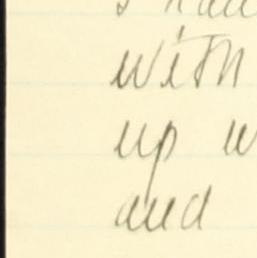 with
up w
and